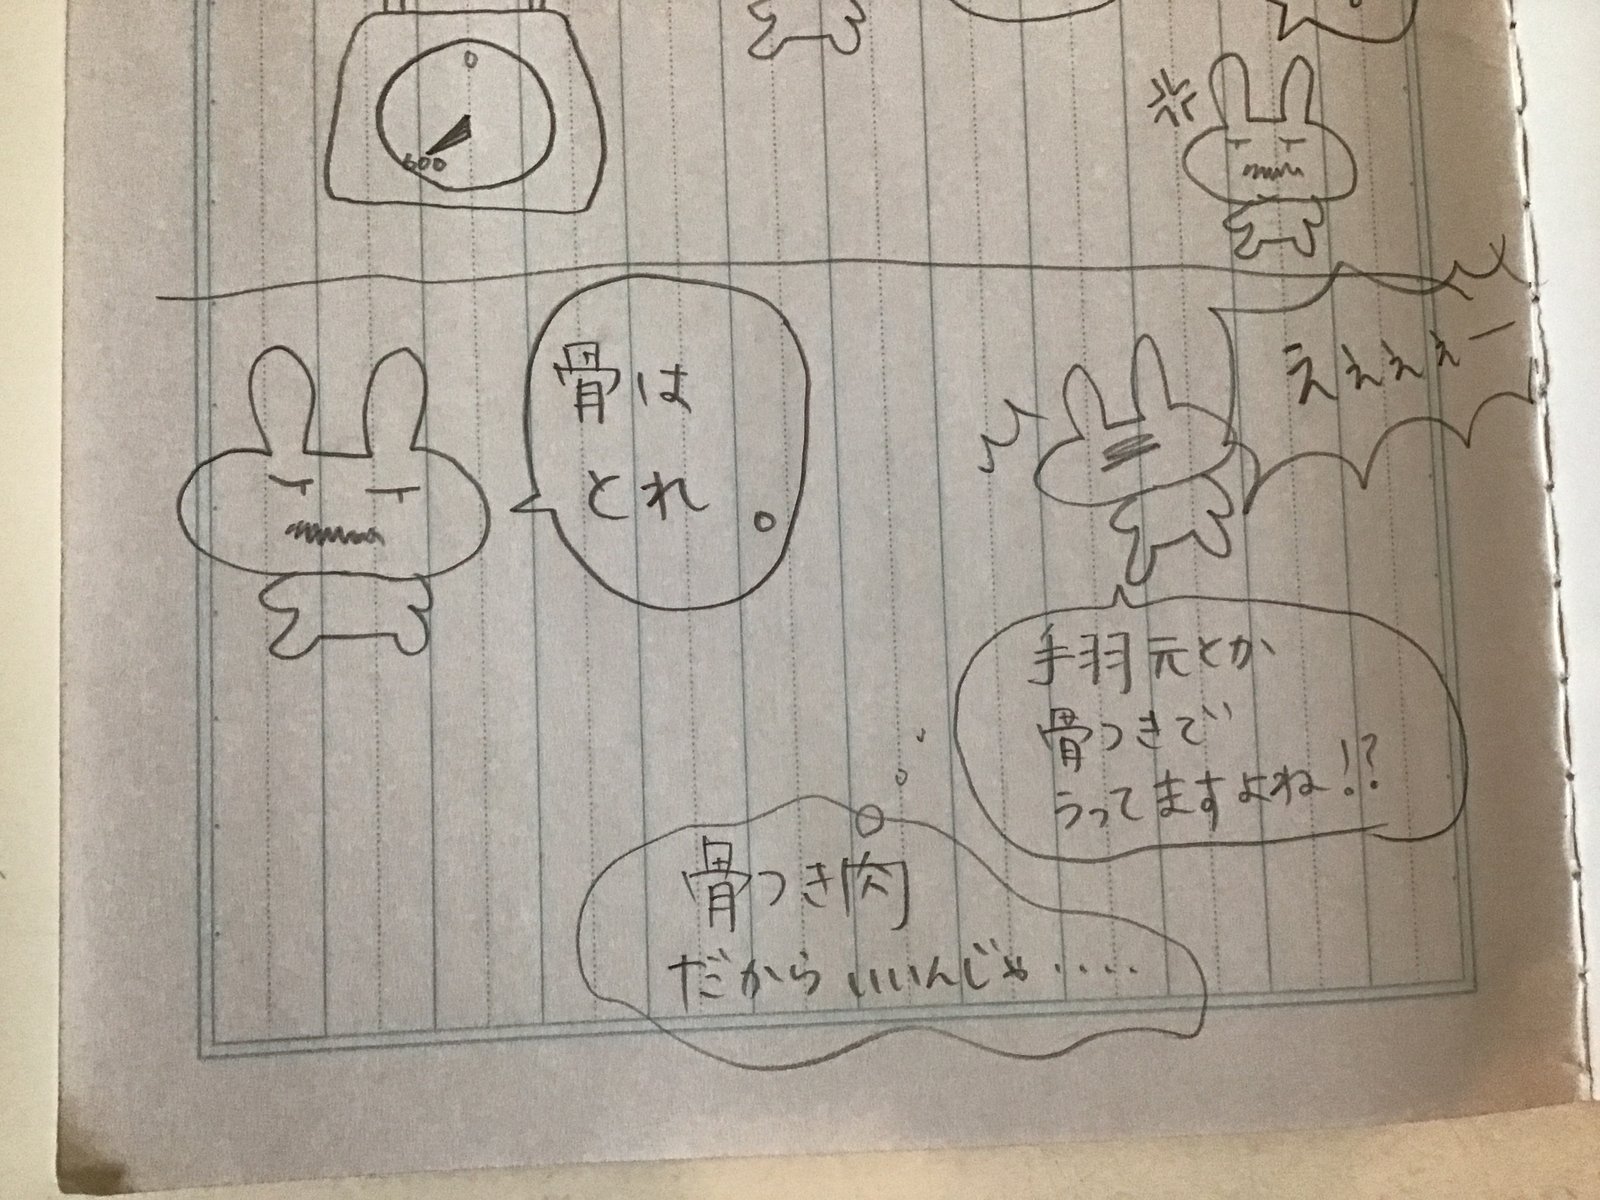 0
600
骨は
とれ。
えぇぇぇー
手羽元とか
骨つきで
うってますよね!?
骨つき肉
だからいいんじゃ‥‥